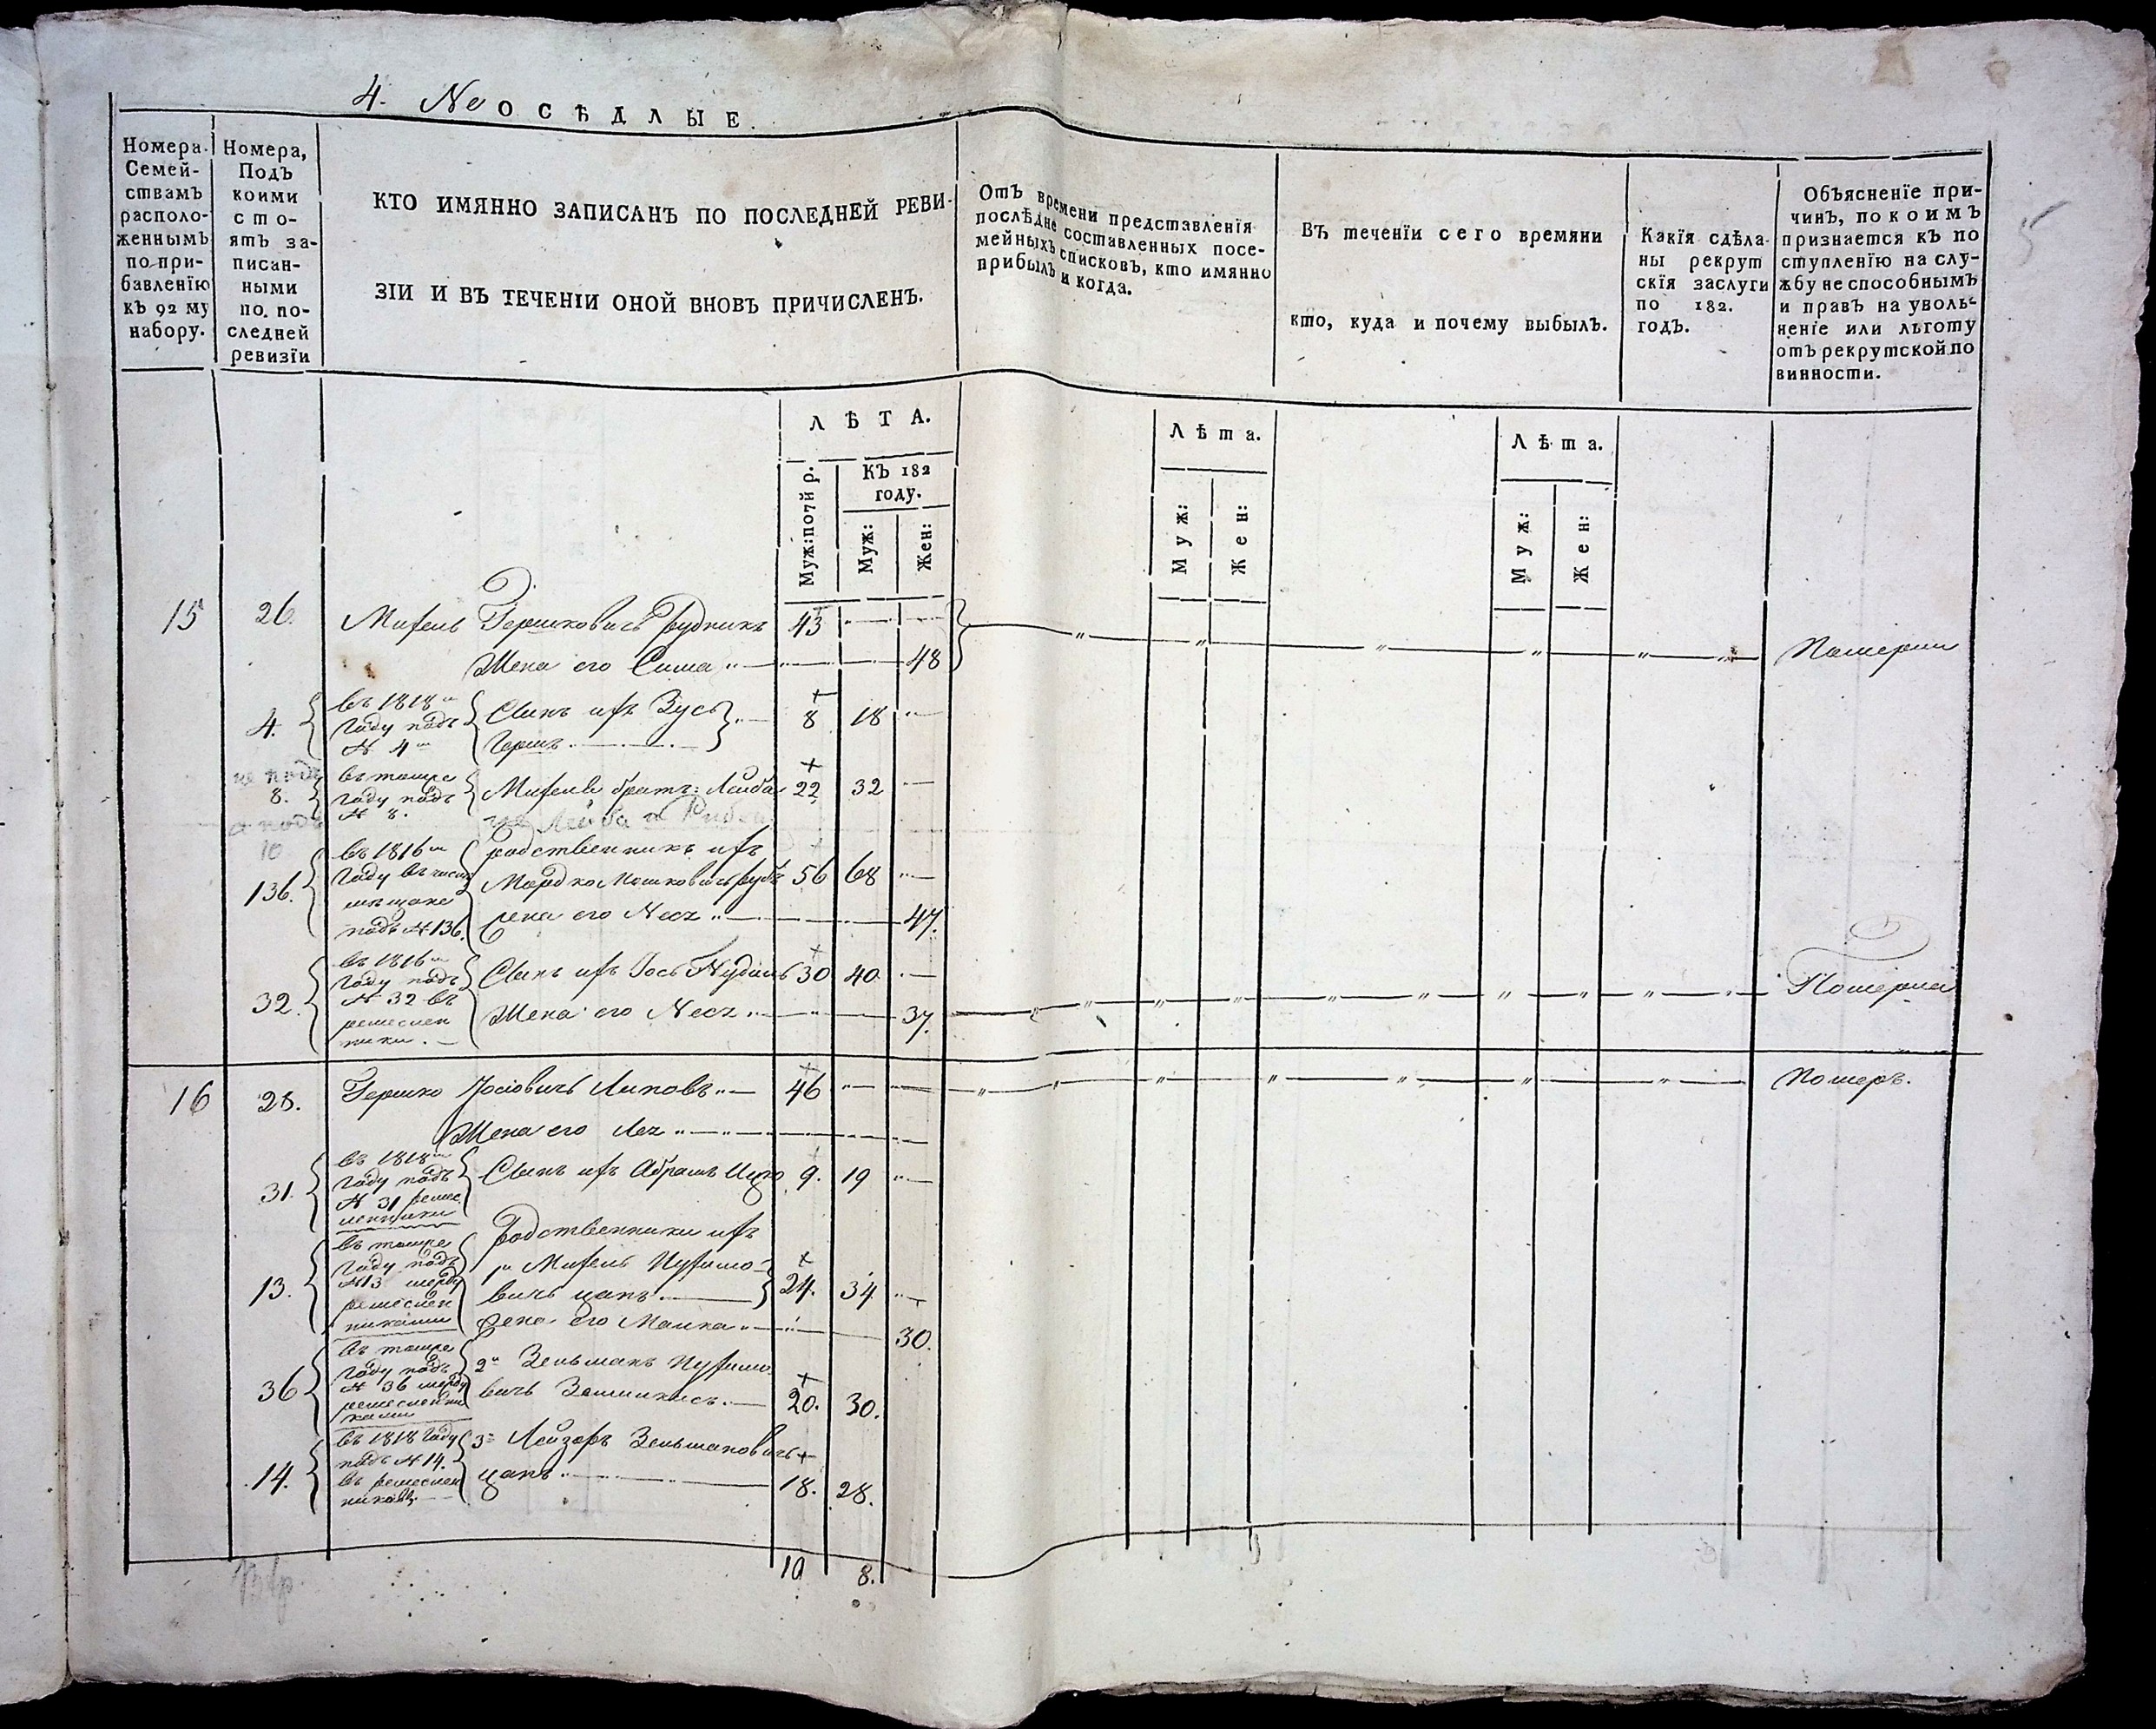 4. Не ОСѢДЛЫЕ.
5
Номера
Семей-
ствамъ
располо-
женнымъ
по при-
бавленїю
къ 92 му
набору.
Номера,
Подъ
коими
сто-
ятъ за-
писан-
ными
по по-
следней
ревизїи
КТО ИМЯННО ЗАПИСАНЪ ПО ПОСЛЕДНЕЙ РЕВИ-
ЗІИ И ВЪ ТЕЧЕНІИ ОНОЙ ВНОВЬ ПРИЧИСЛЕНЪ.
Отъ времени представленїя
послѣдне составленныхъ посе-
мейныхъ списковъ, кто имянно
прибылъ и когда.
Въ теченїи сего времяни
кто, куда и почему выбылъ.
Какїя сдѣла-
ны рекрут
скїя заслуги
по 182.
годъ.
Объясненїе при-
чинъ, по коимъ
признается къ по
ступленїю на слу-
жбу не способнымъ
и правъ на уволь-
ненїе или льготу
отъ рекрутской по
винности.
ЛѢТА.
Муж: по 7й р.
КЪ 182
году.
Муж:
Жен:
Лѣта.
Муж:
Жен:
Лѣта.
Муж:
Жен:
15 26. Михель Гершковичъ Рудникъ 43
Жена его Сима 48 Померли
4. въ 1818м
Году подъ
№ 4м
Сынъ ихъ Зусь
Гершъ 8 18
8. въ томже
Году подъ
№ 8.
Михеля братъ Лейба 22 32
не Лейба
а подъ
10
136. въ 1816м
Году въ числе
мещане
подъ № 136.
родственникъ ихъ
Мордко Мошковичъ 56 68
Жена его Несѧ 47.
32. въ 1816м
Году подъ
№ 32 въ
ремеслен
ники.
Сынъ ихъ Іось 30 40
Жена его Несѧ 37. Померли
16 28. Гершко Іосіовичъ Липовъ 46 Померъ.
Жена его Леѧ
31. въ 1818м
Году подъ
№ 31 ремес
ленники
Сынъ ихъ Абрамъ Ицко 9. 19
13. въ томже
Году подъ
№ 13 между
ремеслен
никами
Родственники ихъ
1й Михель Нухимо-
вичъ цапъ 24. 34
Жена его Малка 30.
36 въ томже
Году подъ
№ 36 между
ремесленни
ками
2й Зельманъ Нухимо
вичъ 20. 30.
14. въ 1818 Году
подъ № 14.
въ ремеслен
никовъ
3й Лейзоръ Зельмановичъ
цапъ 18. 28.
10 8.